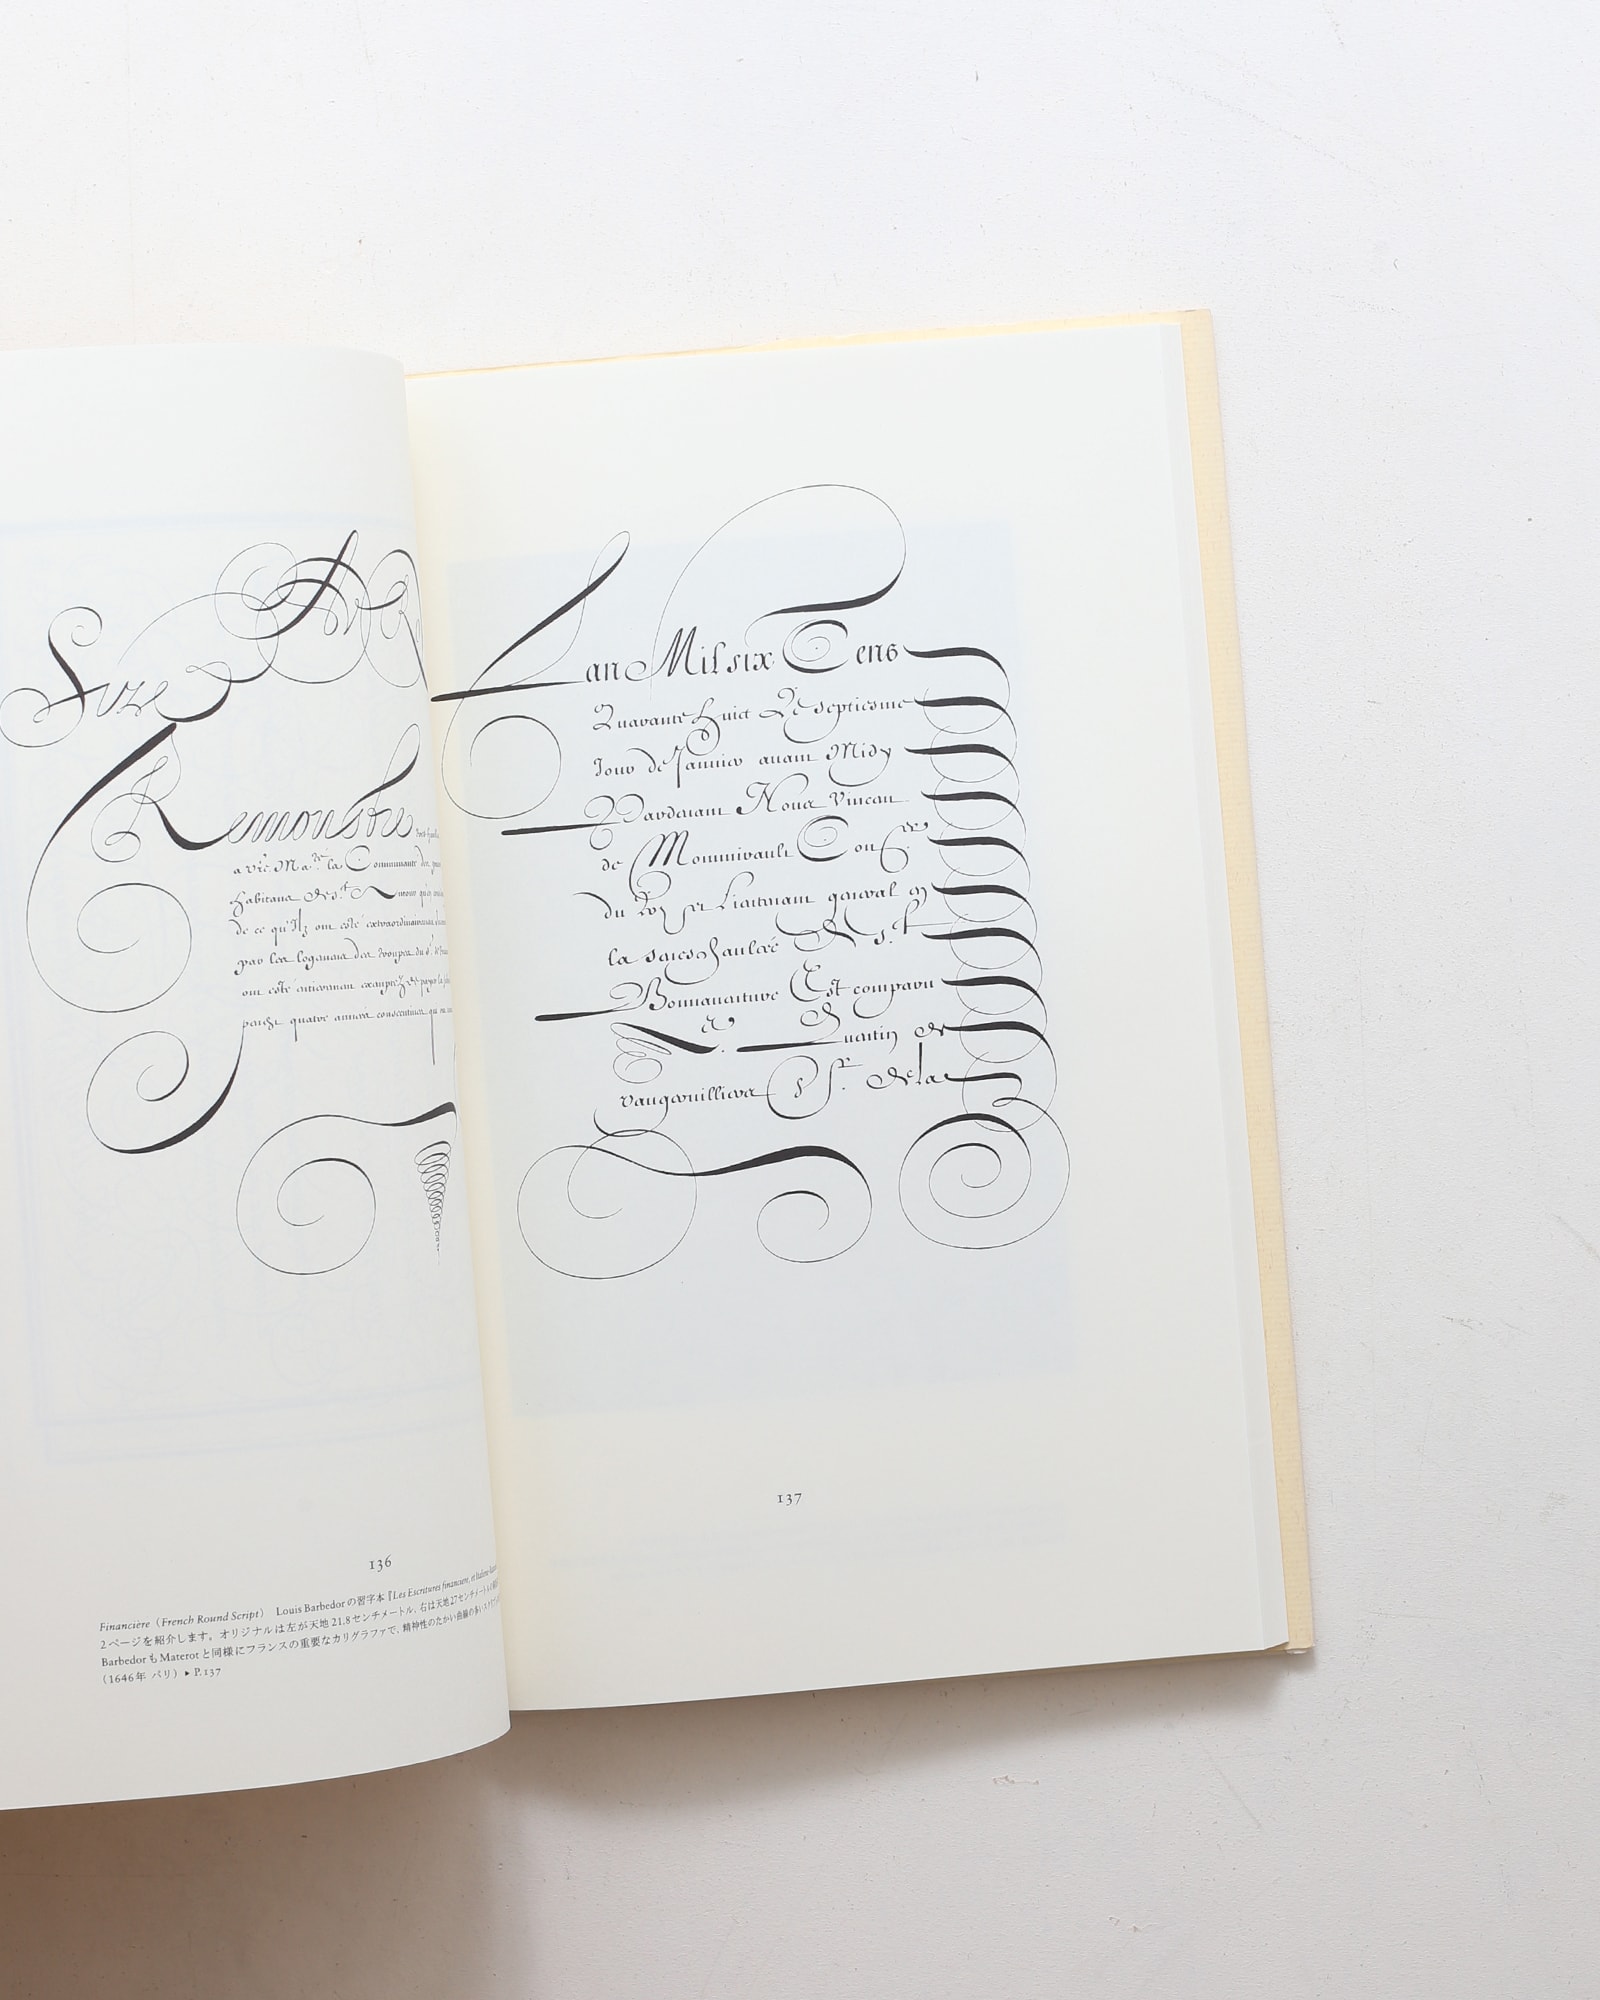 Sire
Remonstre
a vre. Ma.té la Communauté des
habitans de s.t
de ce qu'Ilz ont esté extraordinairement
par les logemens des trouppes du
ont esté antierement exemptez de payer la
pendant quatre années consecutives qu
136
Financière (French Round Script) Louis Barbedorの習字本『Les Escritures financière, et Italienne
2ページを紹介します。オリジナルは左が天地21.8センチメートル、右は天地27センチメートル
BarbedorもMaterotと同様にフランスの重要なカリグラファで、精神性のたかい曲線の多い
(1646年 パリ) ▸ P.137
Lan Mil six Cens
Quarante huict Le septiesme
Jour de Janvier avant Midy
Pardevant Nous Vincent
de Monmirault Con.er
du Roy et Lieutenant general en
la seneschaulcée De s.t
Bonnavanture Est comparu
Quentin de
vaugrenilliere S.r de la
137